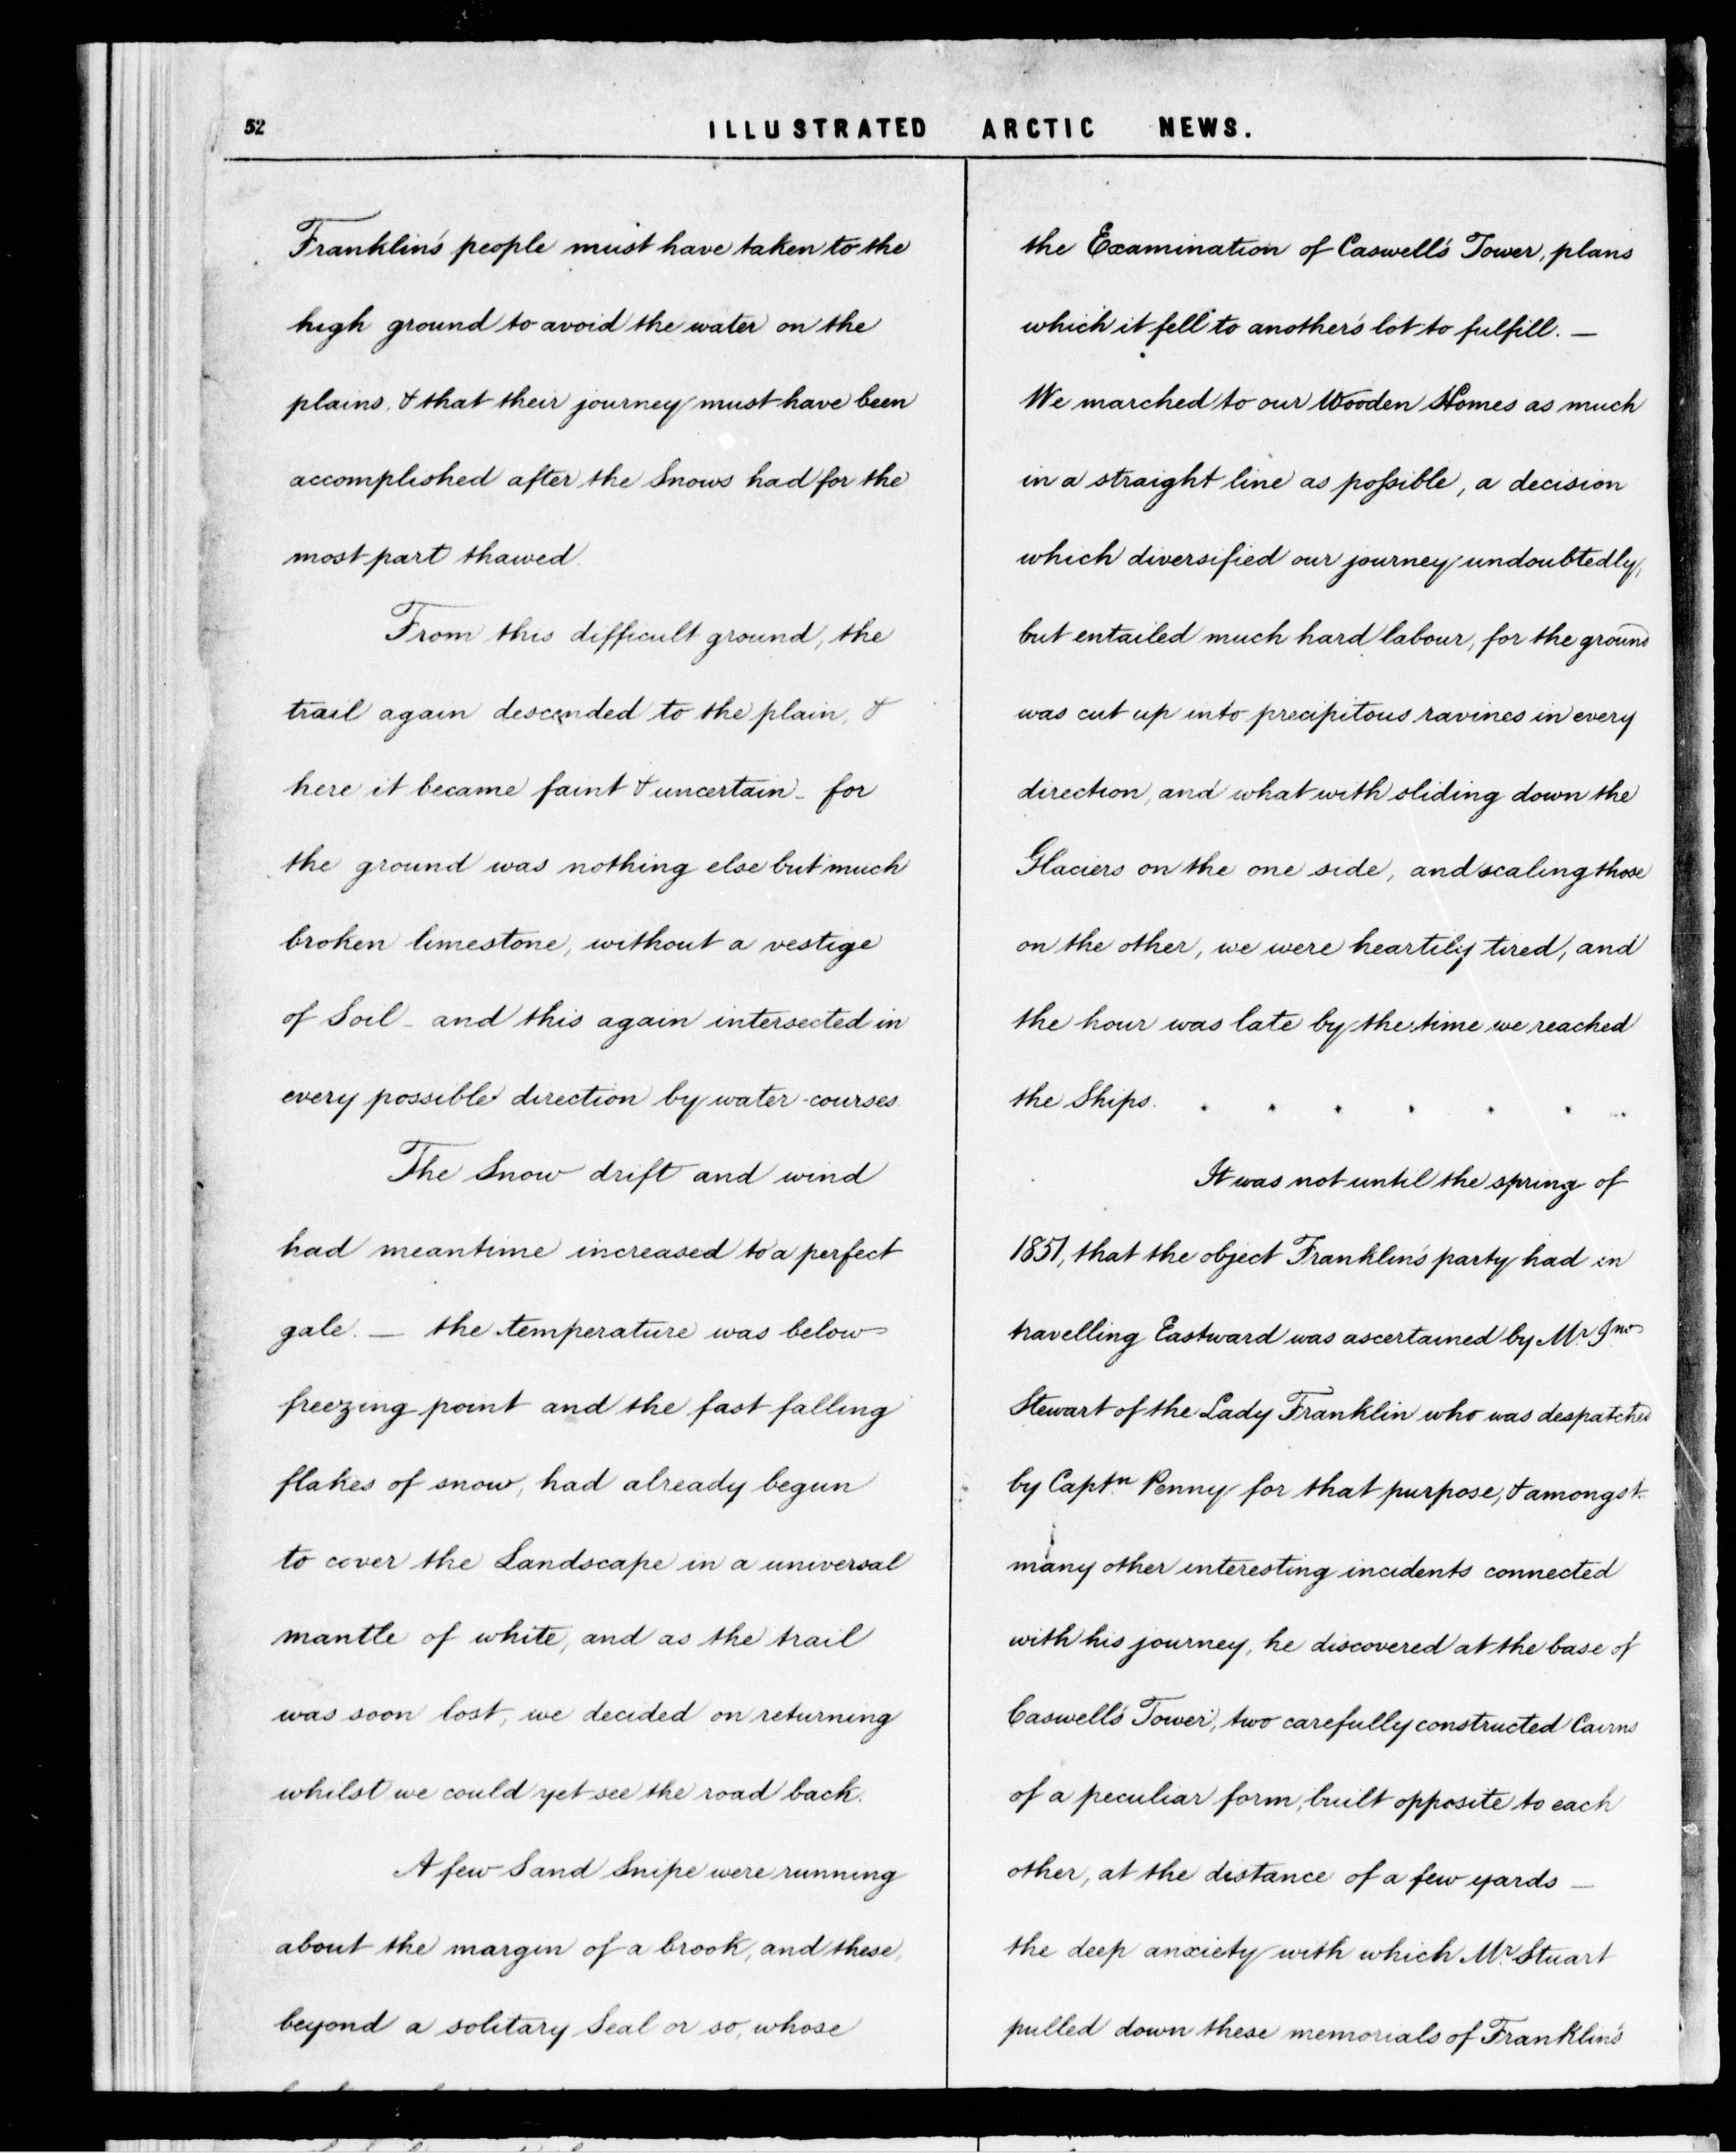 52
ILLUSTRATED ARCTIC NEWS.
Franklin's people must have taken to the
high ground to avoid the water on the
plains, & that their journey must have been
accomplished after the Snows had for the
most part thawed.
From this difficult ground, the
trail again descended to the plain, &
here it became faint & uncertain - for
the ground was nothing else but much
broken limestone, without a vestige
of Soil - and this again intersected in
every possible direction by water-courses.
The Snow drift and wind
had meantime increased to a perfect
gale. — the temperature was below
freezing point and the fast falling
flakes of snow, had already begun
to cover the Landscape in a universal
mantle of white, and as the trail
was soon lost, we decided on returning
whilst we could yet see the road back.
A few Sand Snipe were running
about the margin of a brook, and these,
beyond a solitary Seal or so, whose
the Examination of Caswell's Tower, plans
which it fell to another's lot to fulfill. —
We marched to our Wooden Homes as much
in a straight line as possible, a decision
which diversified our journey undoubtedly,
but entailed much hard labour, for the ground
was cut up into precipitous ravines in every
direction, and what with sliding down the
Glaciers on the one side, and scaling those
on the other, we were heartily tired, and
the hour was late by the time we reached
the Ships. . . . . . . .
It was not until the spring of
1851, that the object Franklin's party had in
travelling Eastward was ascertained by Mr. Jno
Stewart of the Lady Franklin who was despatched
by Captn. Penny for that purpose, & amongst
many other interesting incidents connected
with his journey, he discovered at the base of
Caswell's Tower, two carefully constructed Cairns
of a peculiar form, built opposite to each
other, at the distance of a few yards —
the deep anxiety with which Mr. Stuart
pulled down these memorials of Franklin's